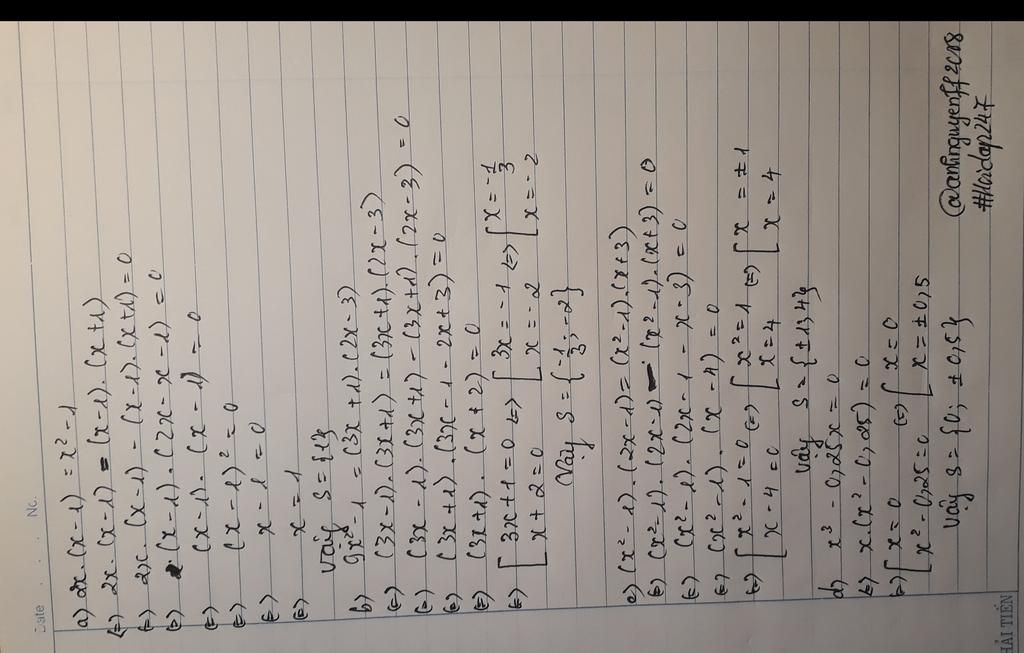 Date No.
a) 2x.(x-1) = x²-1
(=) 2x.(x-1) = (x-1).(x+1)
(=) 2x.(x-1) - (x-1).(x+1) = 0
(=) (x-1).(2x-x-1) = 0
(=) (x-1).(x-1) = 0
(=) (x-1)² = 0
(=) x-1 = 0
(=) x = 1
Vậy S = {1}
b) 9x²-1 = (3x+1).(2x-3)
(=) (3x-1).(3x+1) = (3x+1).(2x-3)
(=) (3x-1).(3x+1) - (3x+1).(2x-3) = 0
(=) (3x+1).(3x-1-2x+3) = 0
(=) (3x+1).(x+2) = 0
(=) [ 3x+1 = 0 (=) [ 3x = -1 (=) [ x = -1/3
x+2 = 0 x = -2 x = -2
Vậy S = {-1/3; -2}
c) (x²-1).(2x-1) = (x²-1).(x+3)
(=) (x²-1).(2x-1) - (x²-1).(x+3) = 0
(=) (x²-1).(2x-1-x-3) = 0
(=) (x²-1).(x-4) = 0
(=) [ x²-1 = 0 (=) [ x² = 1 (=) [ x = ±1
x-4 = 0 x = 4 x = 4
Vậy S = {±1; 4}
d) x³ - 0,25x = 0
(=) x.(x²-0,25) = 0
(=) [ x = 0 (=) [ x = 0
x²-0,25 = 0 x = ±0,5
Vậy S = {0; ±0,5}
@anhnguyenff2018
#Hoidap247
HẢI TIẾN